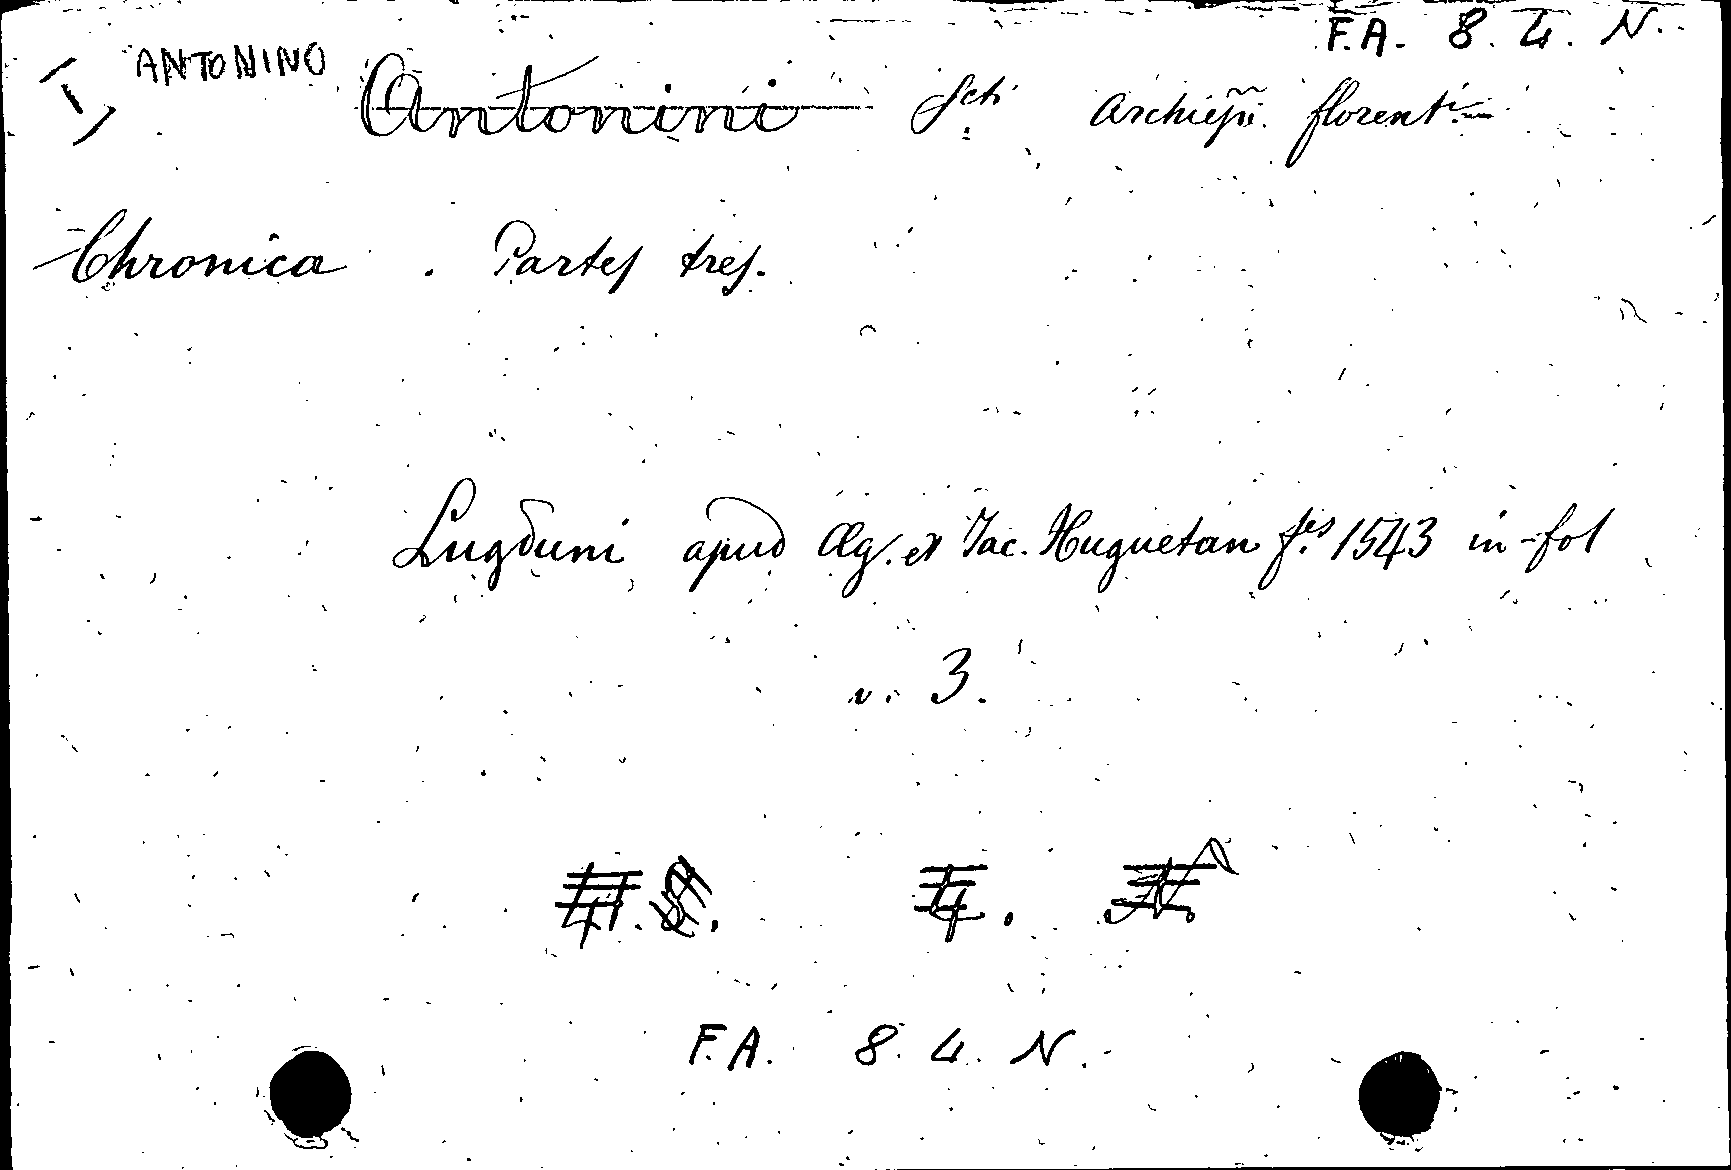 F.A. 8. 4. N.
ANTONINO Antonini Scti Archiepi. florent.
Chronica. Partes tres.
Lugduni apud Æg. et Jac. Huguetan f.es 1543 in-fol
v. 3.
4. N.
F.A. 8. 4. N.